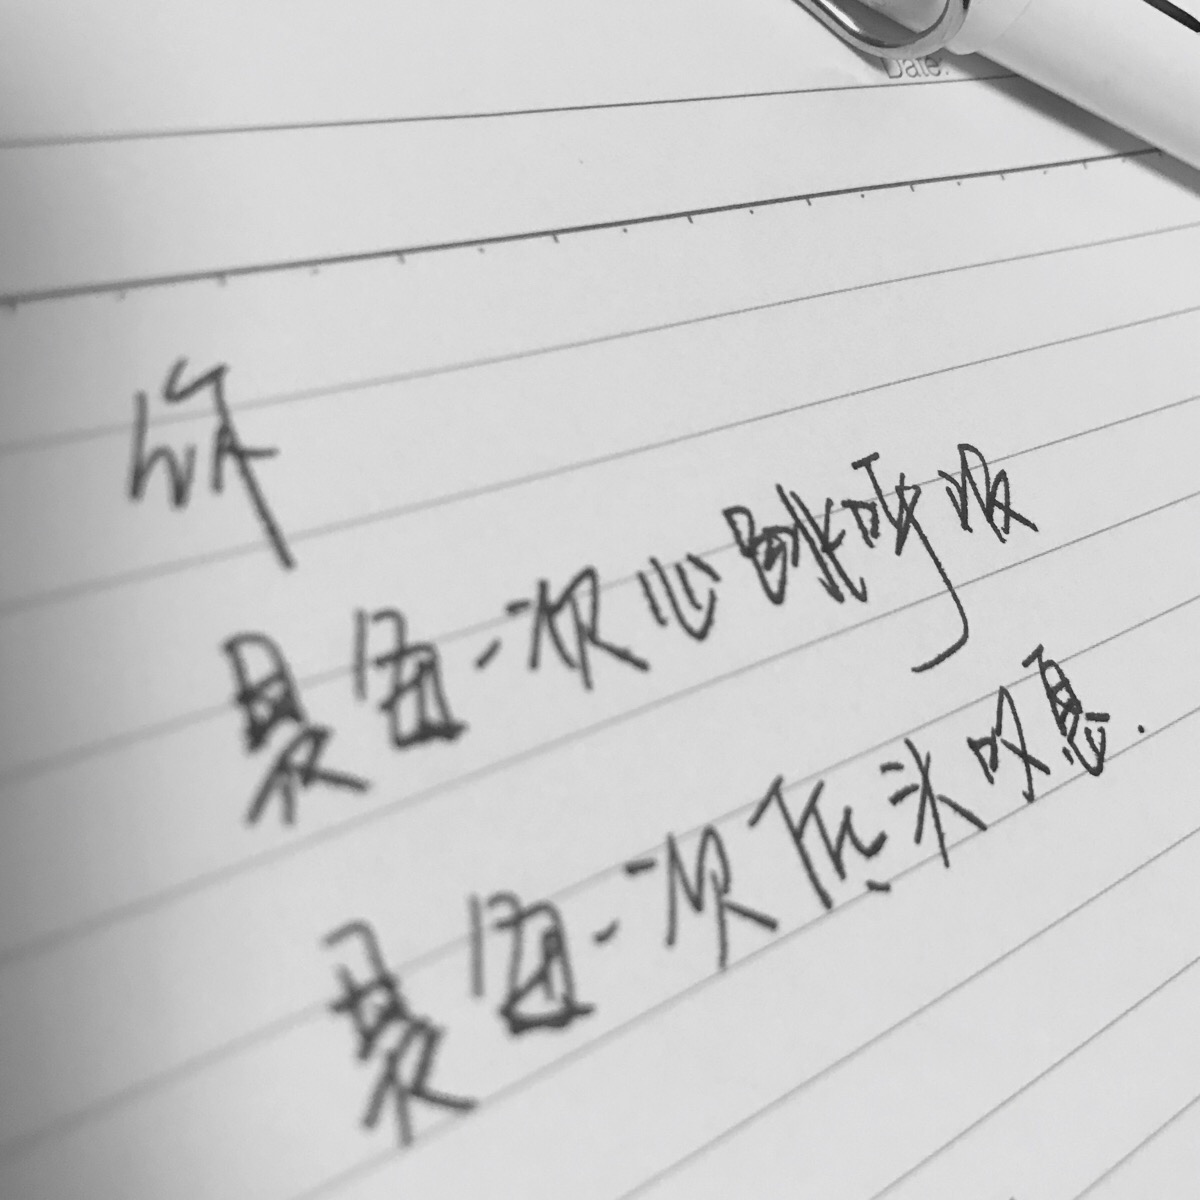 Date:
你
是每一次心跳呼吸
是每一次低头叹息.